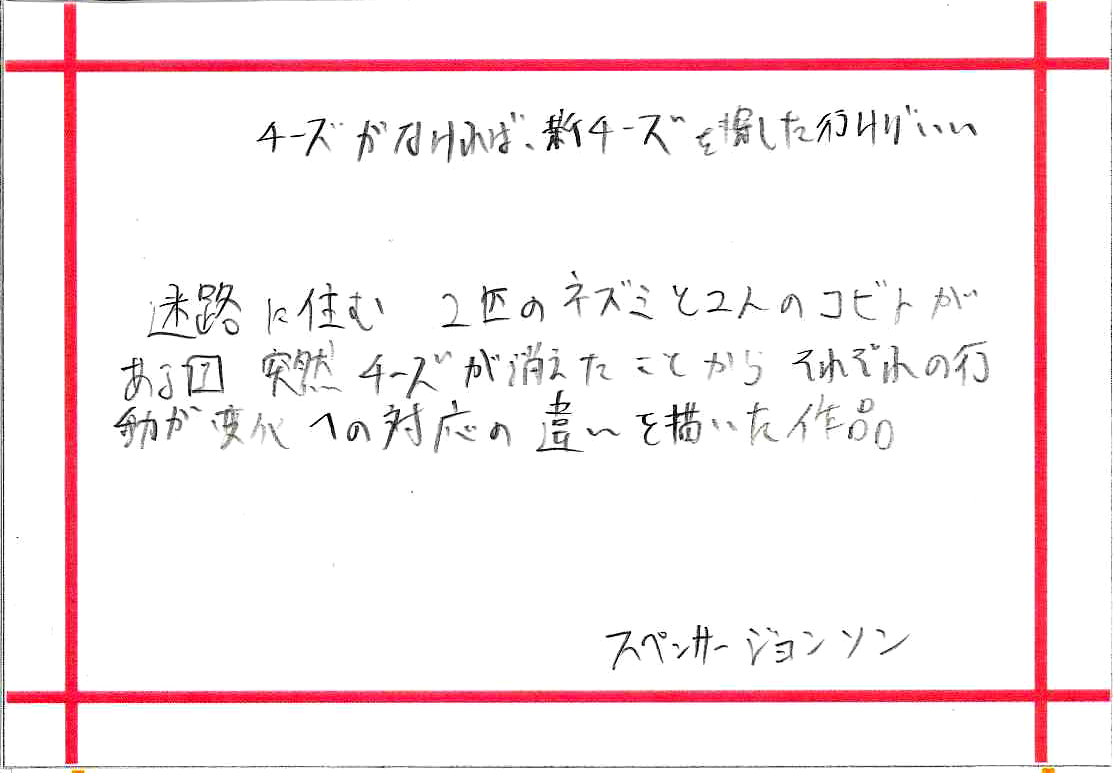 チーズがなければ、新チーズを探した行けばいい
迷路に住む 2匹のネズミと2人のコビトが
ある日 突然 チーズが消えたことから それぞれの行
動が 変化への対応の違いを描いた作品
スペンサー ジョンソン